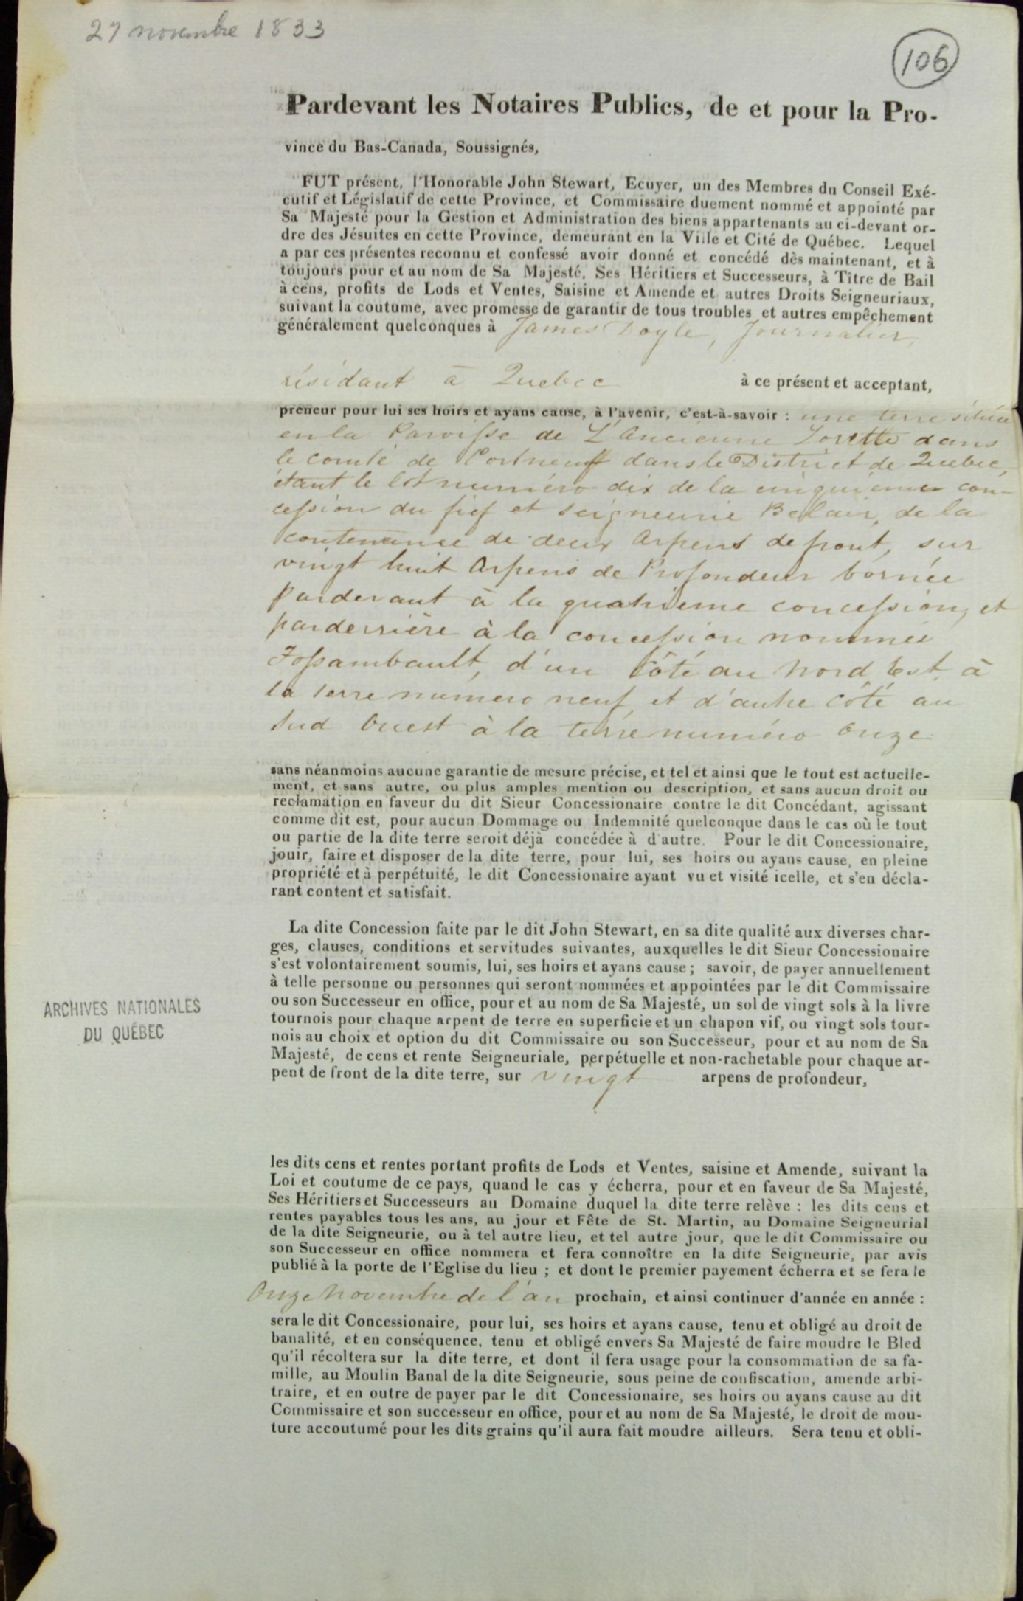 27 novembre 1833
106
Pardevant les Notaires Publics, de et pour la Pro-
vince du Bas-Canada, Soussignés,
FUT présent, l'Honorable John Stewart, Ecuyer, un des Membres du Conseil Exé-
cutif et Législatif de cette Province, et Commissaire duement nommé et appointé par
Sa Majesté pour la Gestion et Administration des biens appartenants au ci-devant or-
dre des Jésuites en cette Province, demeurant en la Ville et Cité de Québec. Lequel
a par ces présentes reconnu et confessé avoir donné et concédé dès maintenant, et à
toujours pour et au nom de Sa Majesté, Ses Héritiers et Successeurs, à Titre de Bail
à cens, profits de Lods et Ventes, Saisine et Amende et autres Droits Seigneuriaux,
suivant la coutume, avec promesse de garantir de tous troubles et autres empêchement
généralement quelconques à James Doyle, Journalier,
résidant à Quebec à ce présent et acceptant,
preneur pour lui ses hoirs et ayans cause, à l'avenir, c'est-à-savoir : une terre située
en la Paroisse de L'Ancienne Lorette dans
le comté de Portneuf dans le District de Quebec,
étant le lot numéro dix de la cinquième con-
cession du fief et seigneurie Belair, de la
contenance de deux Arpens de front, sur
vingt huit Arpens de Profondeur bornée
pardevant à la quatrieme concession, et
parderrière à la concession nommée
Fossambault, d'un Côté au Nord Est à
la terre numero neuf, et d'autre Côté au
Sud Ouest à la terre numéro Onze
sans néanmoins aucune garantie de mesure précise, et tel et ainsi que le tout est actuelle-
ment, et sans autre, ou plus amples mention ou description, et sans aucun droit ou
reclamation en faveur du dit Sieur Concessionaire contre le dit Concédant, agissant
comme dit est, pour aucun Dommage ou Indemnité quelconque dans le cas où le tout
ou partie de la dite terre seroit déjà concédée à d'autre. Pour le dit Concessionaire,
jouir, faire et disposer de la dite terre, pour lui, ses hoirs ou ayans cause, en pleine
propriété et à perpétuité, le dit Concessionaire ayant vu et visité icelle, et s'en décla-
rant content et satisfait.
La dite Concession faite par le dit John Stewart, en sa dite qualité aux diverses char-
ges, clauses, conditions et servitudes suivantes, auxquelles le dit Sieur Concessionaire
s'est volontairement soumis, lui, ses hoirs et ayans cause ; savoir, de payer annuellement
à telle personne ou personnes qui seront nommées et appointées par le dit Commissaire
ou son Successeur en office, pour et au nom de Sa Majesté, un sol de vingt sols à la livre
tournois pour chaque arpent de terre en superficie et un chapon vif, ou vingt sols tour-
nois au choix et option du dit Commissaire ou son Successeur, pour et au nom de Sa
Majesté, de cens et rente Seigneuriale, perpétuelle et non-rachetable pour chaque ar-
pent de front de la dite terre, sur vingt arpens de profondeur,
ARCHIVES NATIONALES
DU QUÉBEC
les dits cens et rentes portant profits de Lods et Ventes, saisine et Amende, suivant la
Loi et coutume de ce pays, quand le cas y écherra, pour et en faveur de Sa Majesté,
Ses Héritiers et Successeurs au Domaine duquel la dite terre relève : les dits cens et
rentes payables tous les ans, au jour et Fête de St. Martin, au Domaine Seigneurial
de la dite Seigneurie, ou à tel autre lieu, et tel autre jour, que le dit Commissaire ou
son Successeur en office nommera et fera connoître en la dite Seigneurie, par avis
publié à la porte de l'Eglise du lieu ; et dont le premier payement écherra et se fera le
Onze Novembre de l'an prochain, et ainsi continuer d'année en année :
sera le dit Concessionaire, pour lui, ses hoirs et ayans cause, tenu et obligé au droit de
banalité, et en conséquence, tenu et obligé envers Sa Majesté de faire moudre le Bled
qu'il récoltera sur la dite terre, et dont il fera usage pour la consommation de sa fa-
mille, au Moulin Banal de la dite Seigneurie, sous peine de confiscation, amende arbi-
traire, et en outre de payer par le dit Concessionaire, ses hoirs ou ayans cause au dit
Commissaire et son successeur en office, pour et au nom de Sa Majesté, le droit de mou-
ture accoutumé pour les dits grains qu'il aura fait moudre ailleurs. Sera tenu et obli-